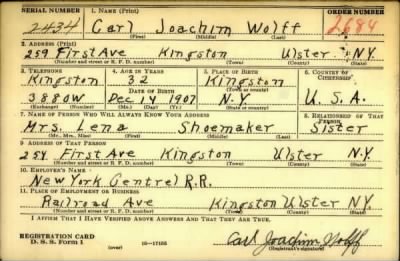 SERIAL NUMBER 1. NAME (Print) ORDER NUMBER
2434 Carl Joachim Wolff 2684
(First) (Middle) (Last)
2. ADDRESS (Print)
259 First Ave Kingston Ulster N.Y.
(Number and street or R. F. D. number) (Town) (County) (State)
3. TELEPHONE 4. AGE IN YEARS 5. PLACE OF BIRTH 6. COUNTRY OF CITIZENSHIP
Kingston 32 Kingston
DATE OF BIRTH (Town or county)
3880W Dec 14 1907 N.Y. U.S.A.
(Exchange) (Number) (Mo.) (Day) (Yr.) (State or country)
7. NAME OF PERSON WHO WILL ALWAYS KNOW YOUR ADDRESS 8. RELATIONSHIP OF THAT PERSON
Mrs. Lena Shoemaker Sister
(Mr., Mrs., Miss) (First) (Middle) (Last)
9. ADDRESS OF THAT PERSON
First Ave Kingston Ulster N.Y.
(Number and street or R. F. D. number) (Town) (County) (State)
10. EMPLOYER'S NAME
New York Central R.R.
11. PLACE OF EMPLOYMENT OR BUSINESS
Railroad Ave Kingston Ulster N.Y.
(Number and street or R. F. D. number) (Town) (County) (State)
I AFFIRM THAT I HAVE VERIFIED ABOVE ANSWERS AND THAT THEY ARE TRUE.
REGISTRATION CARD
D. S. S. Form 1 (over) 16-17105 Carl Joachim Wolff
(Registrant's signature)